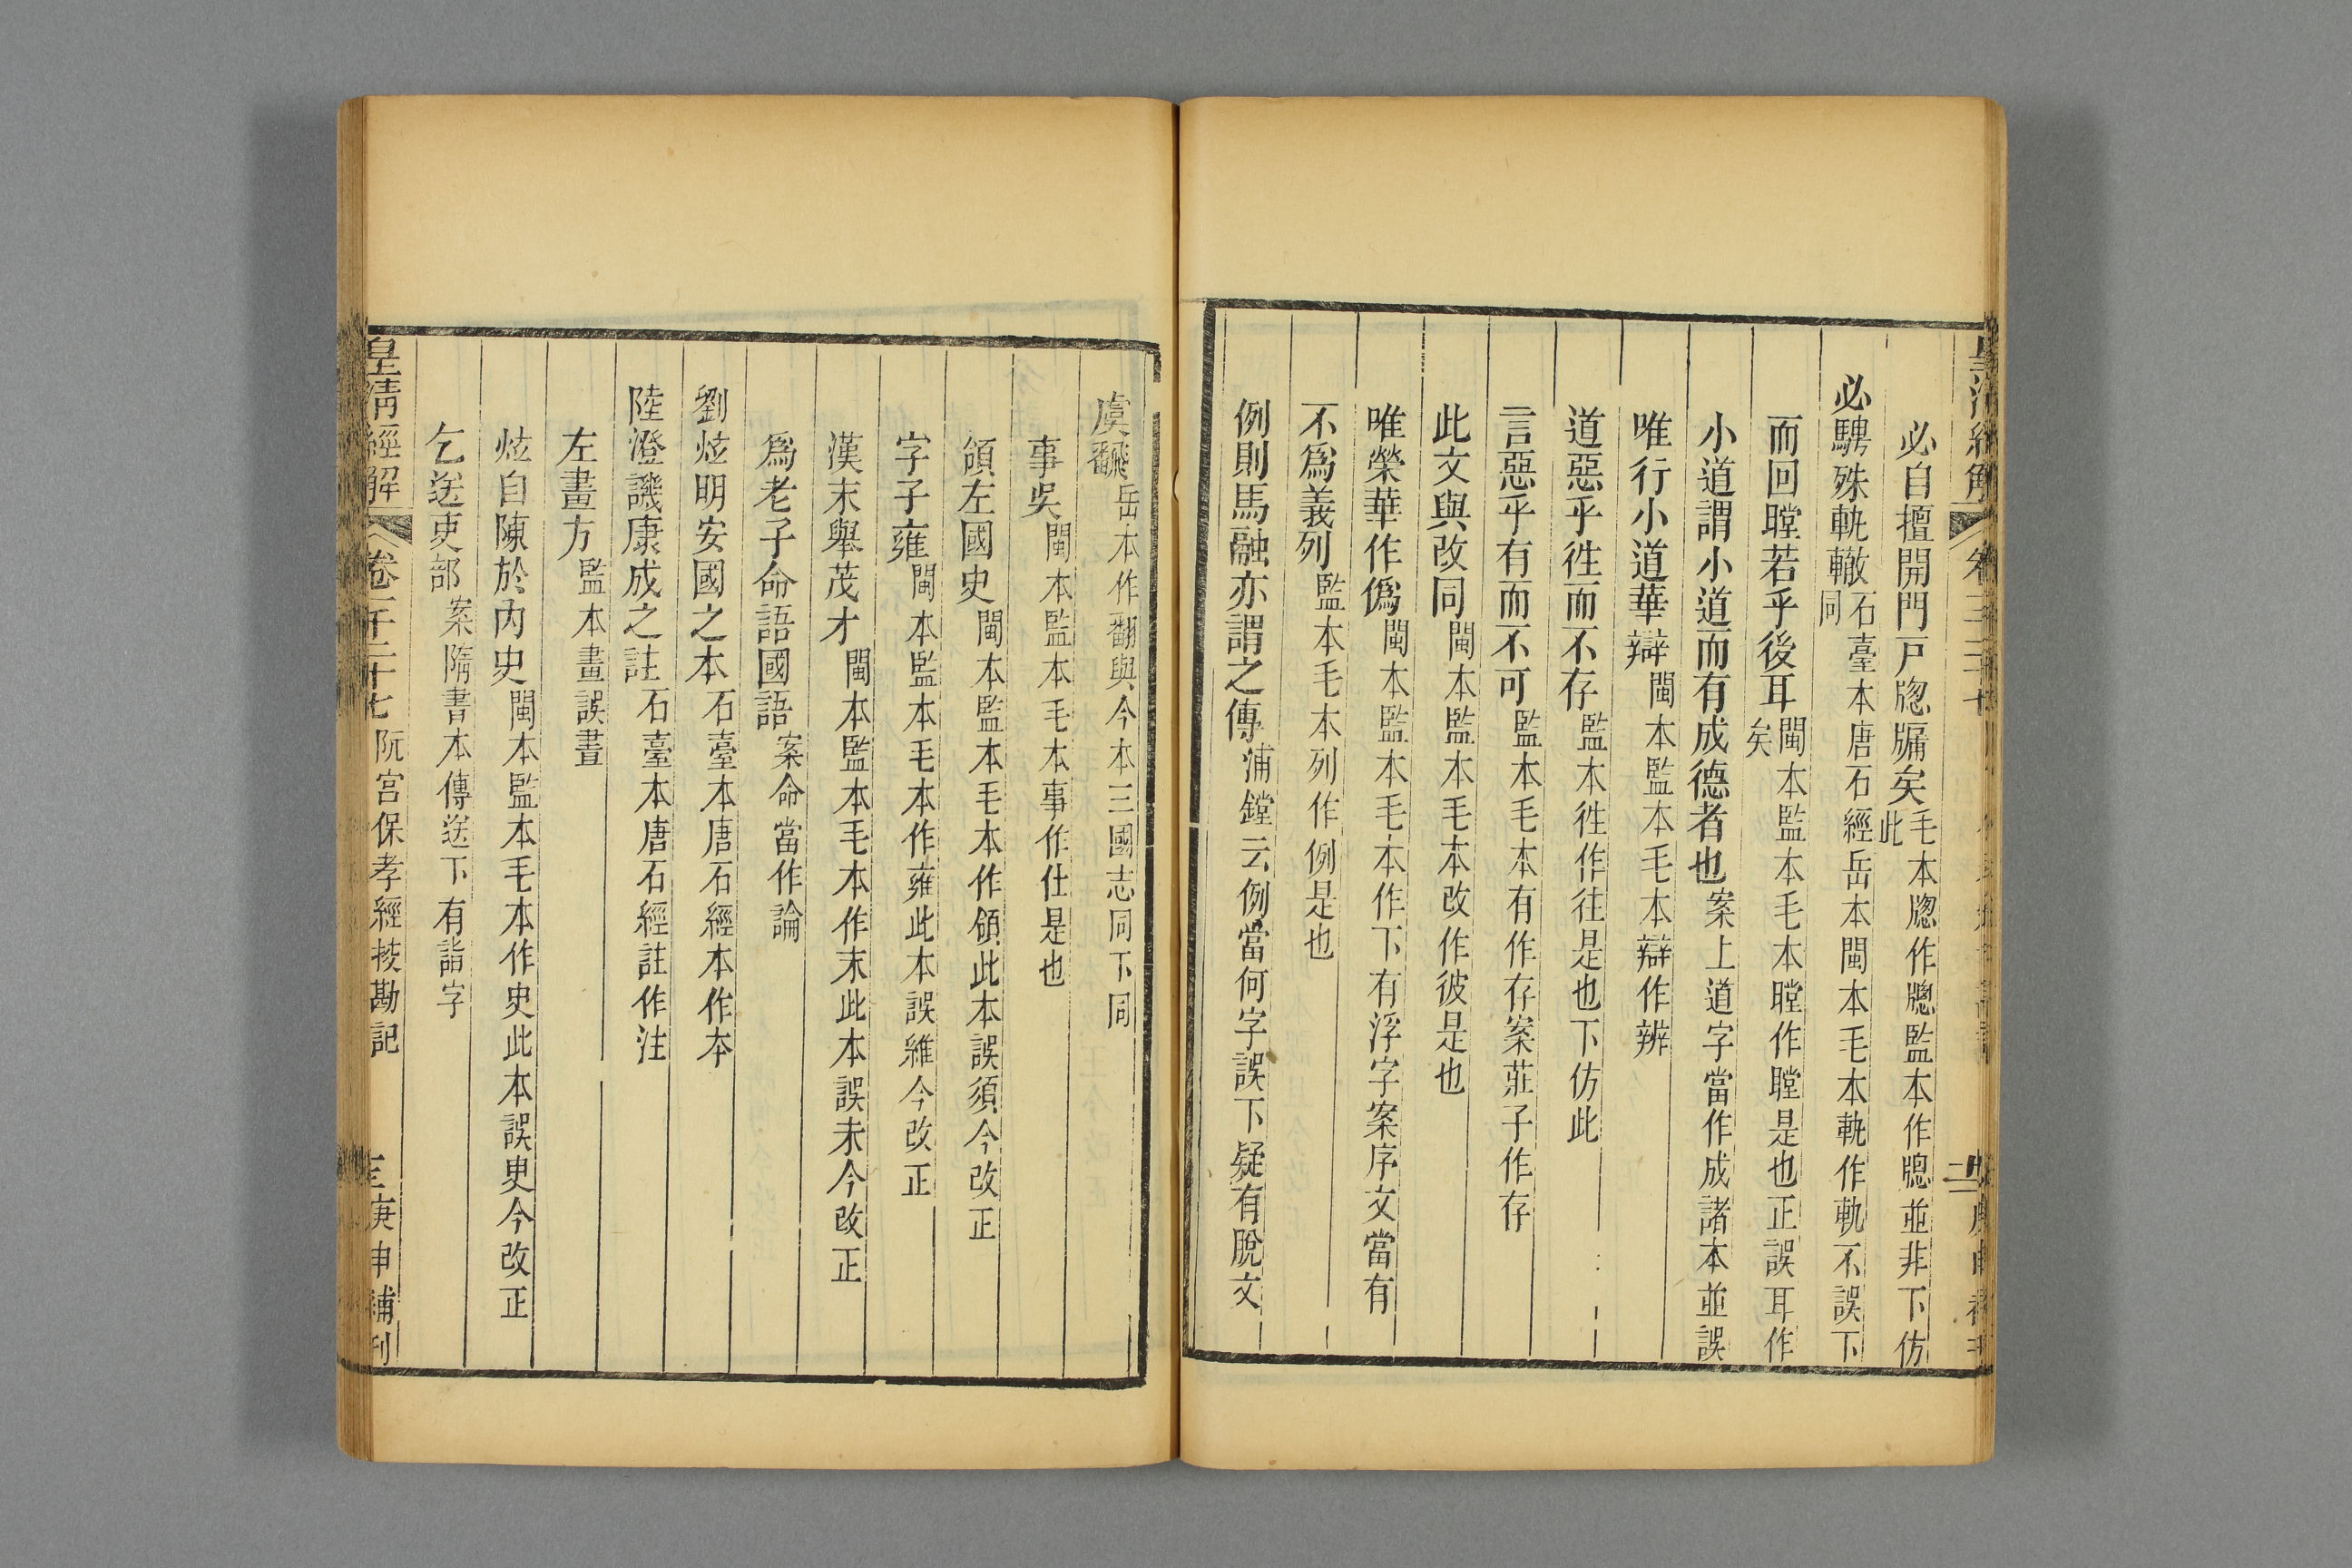 必自擅開門戸牎牖矣毛本牎作牕監本作牕並非下仿此
必騁殊軌轍石臺本唐石經岳本閩本毛本軌作軌不誤下同
而回瞠若乎後耳閩本監本毛本瞠作瞠是也正誤耳作矣
小道謂小道而有成德者也案上道字當作成諸本並誤
唯行小道華辯閩本監本毛本辯作辨
道惡乎徃而不存監本徃作往是也下仿此
言惡乎有而不可監本毛本有作存案莊子作存
此文與攺同閩本監本毛本攺作彼是也
唯榮華作僞閩本監本毛本作下有浮字案序文當有
不爲義列監本毛本列作例是也
例則馬融亦謂之傳浦鏜云例當何字誤下疑有脫文
虞飜岳本作翻與今本三國志同下同
事吳閩本監本毛本事作仕是也
頜左國史閩本監本毛本作領此本誤須今改正
字子雍閩本監本毛本作雍此本誤維今改正
漢末舉茂才閩本監本毛本作末此本誤未今改正
爲老子命語國語案命當作論
劉炫明安國之本石臺本唐石經本作夲
陸澄譏康成之註石臺本唐石經註作注
左畫方監本畫誤晝
炫自陳於內史閩本監本毛本作史此本誤吏今改正
乞送吏部案隋書本傳送下有詣字
皇清經解 卷一千二十七 阮宮保孝經挍勘記 三 庚申補刊